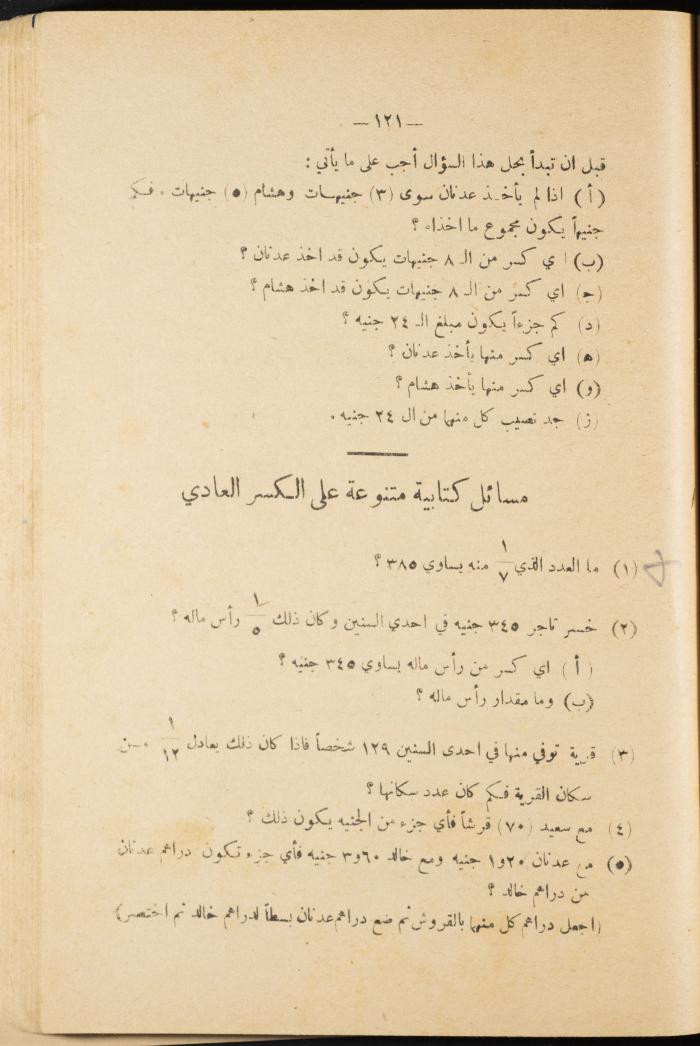 — ١٢١ —
قبل ان تبدأ بحل هذا السؤال أجب على ما يأتي :
( أ ) اذا لم يأخذ عدنان سوى (٣) جنيهات وهشام (٥) جنيهات . فكم
جنيهاً يكون مجموع ما اخذاه ؟
(ب) اي كسر من الـ ٨ جنيهات يكون قد اخذ عدنان ؟
(ج) اي كسر من الـ ٨ جنيهات يكون قد اخذ هشام ؟
(د) كم جزءاً يكون مبلغ الـ ٢٤ جنيه ؟
(ه) اي كسر منها يأخذ عدنان ؟
(و) اي كسر منها يأخذ هشام ؟
(ز) جد نصيب كل منهما من ال ٢٤ جنيه .
مسائل كتابية متنوعة على الكسر العادي
(١) ما العدد الذي ١/٧ منه يساوي ٣٨٥ ؟
(٢) خسر تاجر ٣٤٥ جنيه في احدي السنين وكان ذلك ١/٥ رأس ماله ؟
( أ ) اي كسر من رأس ماله يساوي ٣٤٥ جنيه ؟
(ب) وما مقدار رأس ماله ؟
(٣) قرية توفي منها في احدى السنين ١٢٩ شخصاً فاذا كان ذلك يعادل ١/١٢ من
سكان القرية فكم كان عدد سكانها ؟
(٤) مع سعيد (٧٠) قرشاً فأي جزء من الجنيه يكون ذلك ؟
(٥) مع عدنان ٢٠و١ جنيه ومع خالد ٦٠و٣ جنيه فأي جزء تكون دراهم عدنان
من دراهم خالد ؟
(اجعل دراهم كل منهما بالقروش ثم ضع دراهم عدنان بسطاً لدراهم خالد ثم اختصر)